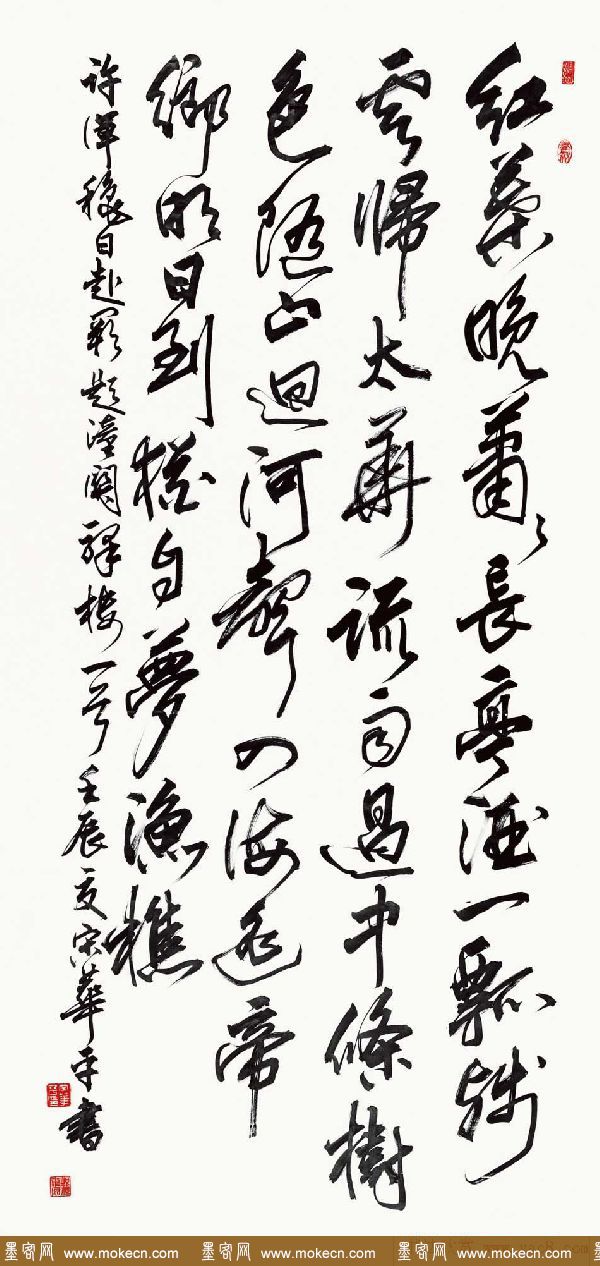 紅葉晚蕭〻長亭酒一瓢殘
雲歸太華疏雨過中條樹
色隨山迴河聲入海遥帝
鄉明日到猶自夢漁樵
許渾穐日赴闕題潼関驛樓一首 壬辰夏宋華平書
墨客网 www.mokecn.com 墨客网 www.mokecn.com 墨客网 www.mokecn.com